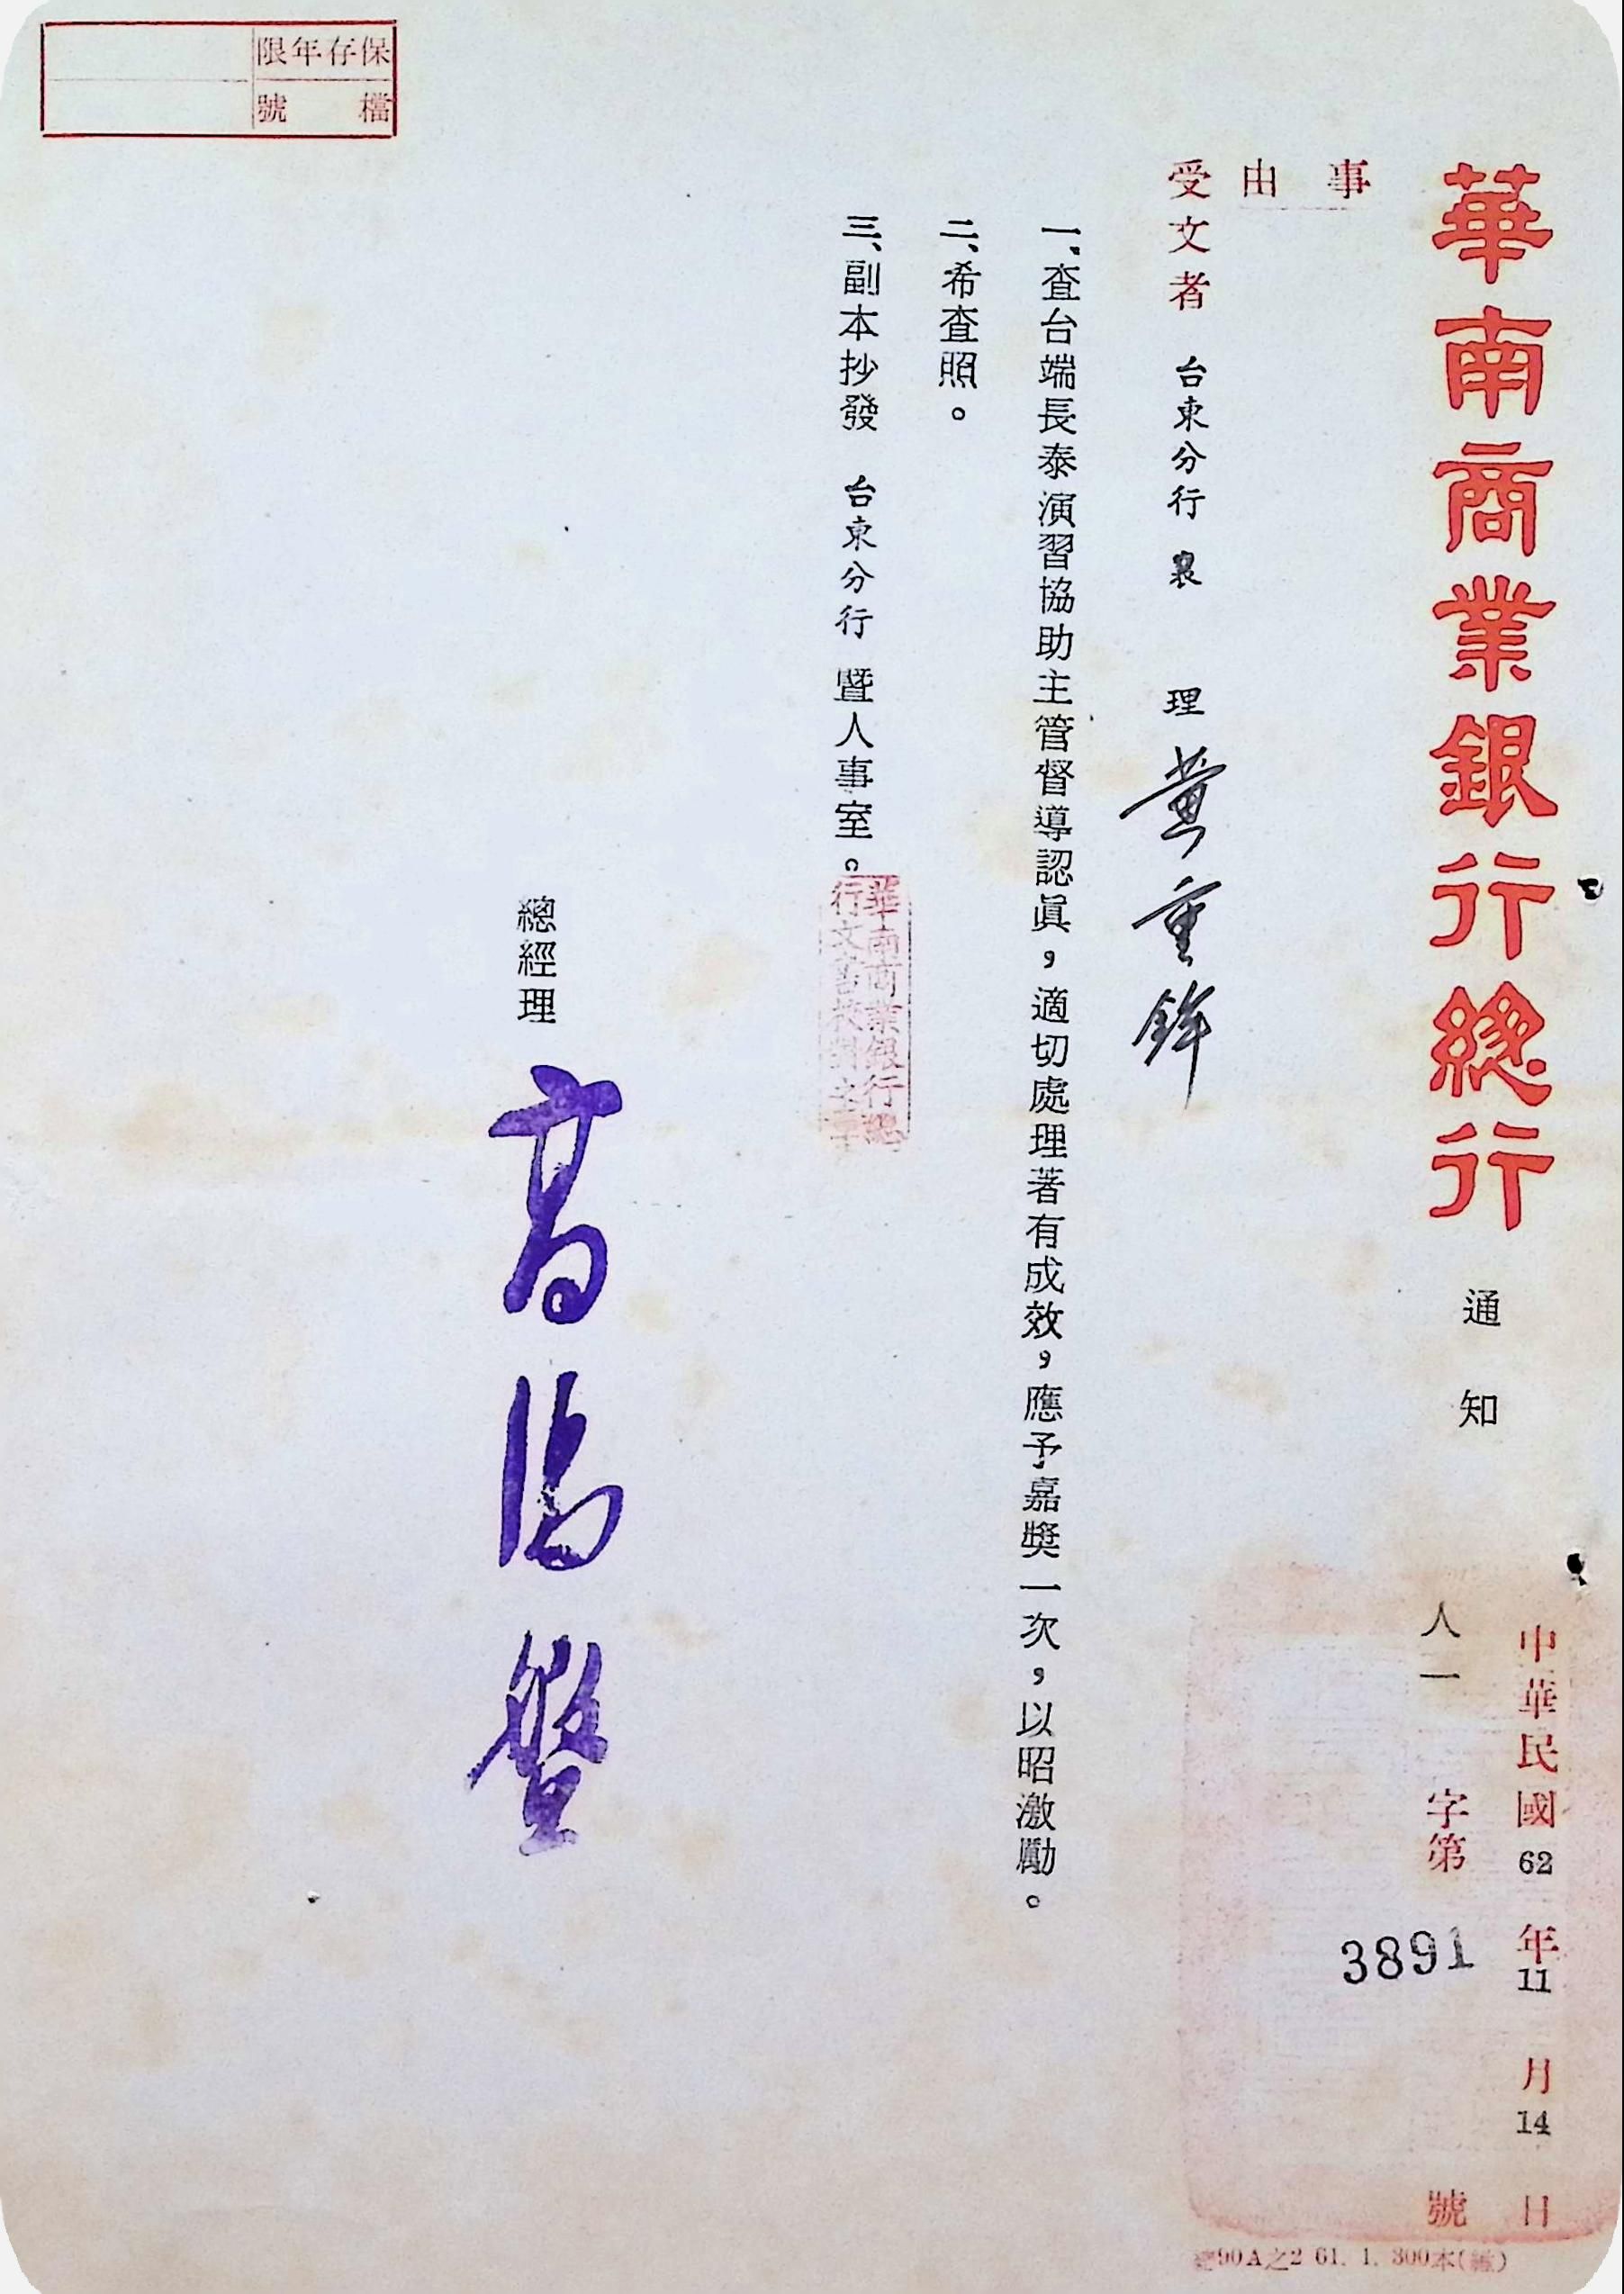 華南商業銀行總行 通知
中華民國62年11月14日
人一字第3891號
事由
受文者 台東分行 襄理 黃重鋒
一、查台端長泰演習協助主管督導認眞，適切處理著有成效，應予嘉獎一次，以昭激勵。
二、希查照。
三、副本抄發 台東分行 暨人事室。
華南商業銀行總
行文書校對之章
總經理 高湯盤
保存年限
檔號
90A之2 61. 1. 300本